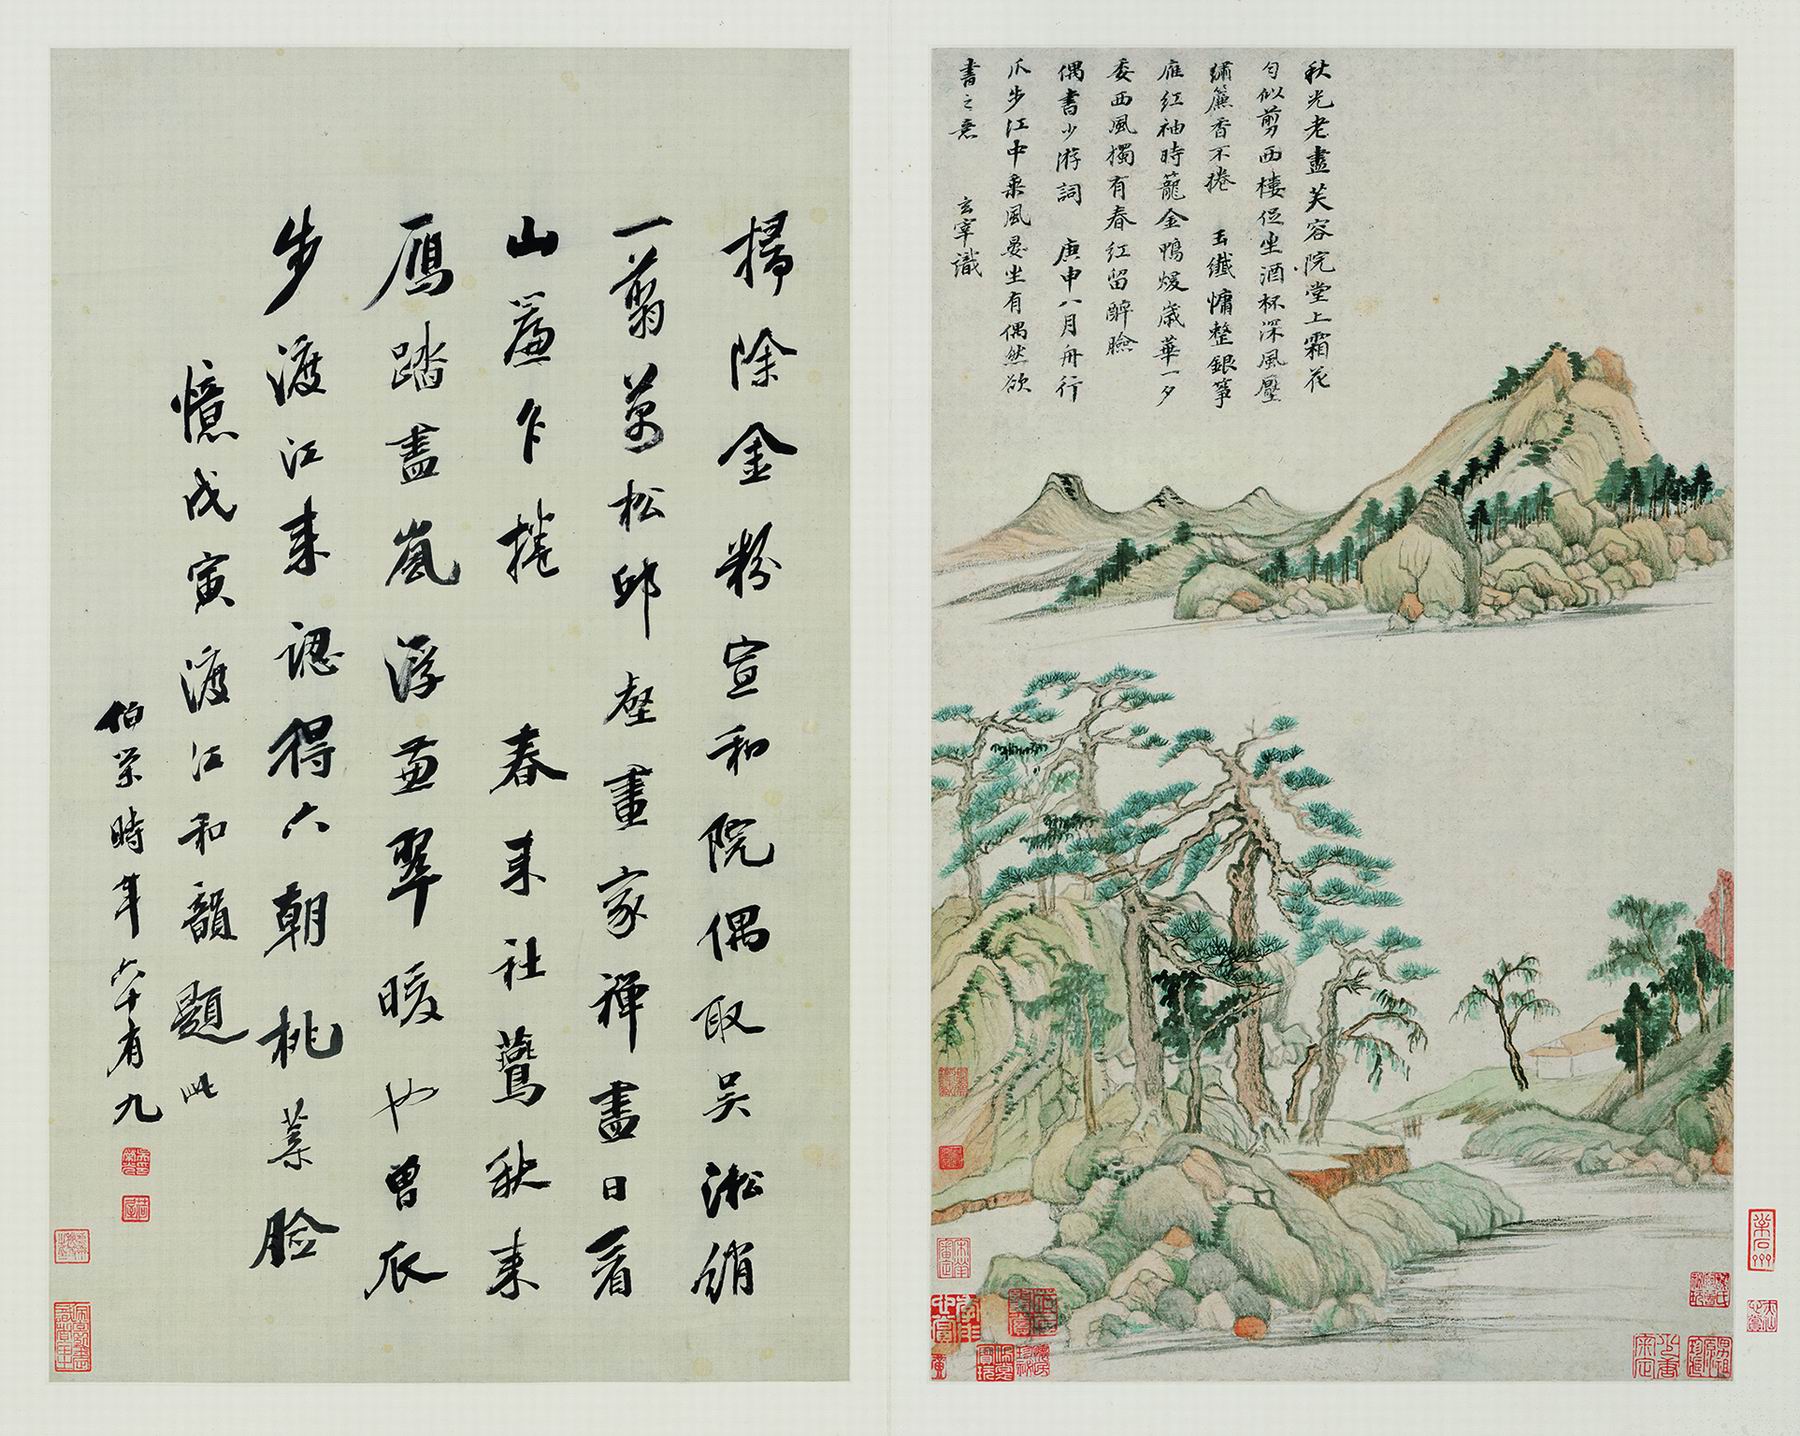 秋光老盡芙容院堂上霜花
匀似剪西樓促坐酒杯深風壓
繡簾香不捲 玉纖慵整銀箏
雁紅袖時籠金鴨煖歲華一夕
委西風獨有春紅留醉臉
偶書少游詞 庚申八月舟行
瓜步江中乘風晏坐有偶然欲
書之意 玄宰識
掃除金粉宣和院偶取吳淞綃
一翦萬松邱壑畫家禪盡日看
山簾乍捲 春來社鷰秋來
鴈踏盡嵐浮兼翠暖也曾瓜
步渡江來認得六朝桃葉臉
憶戊寅渡江和韻題此
伯榮時年六十有九